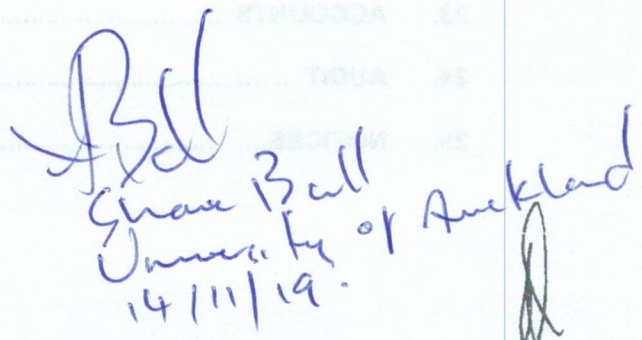 23. ACCOUNTS
24. AUDIT
25. NOTICES
Ball
University of Auckland
14/11/19.